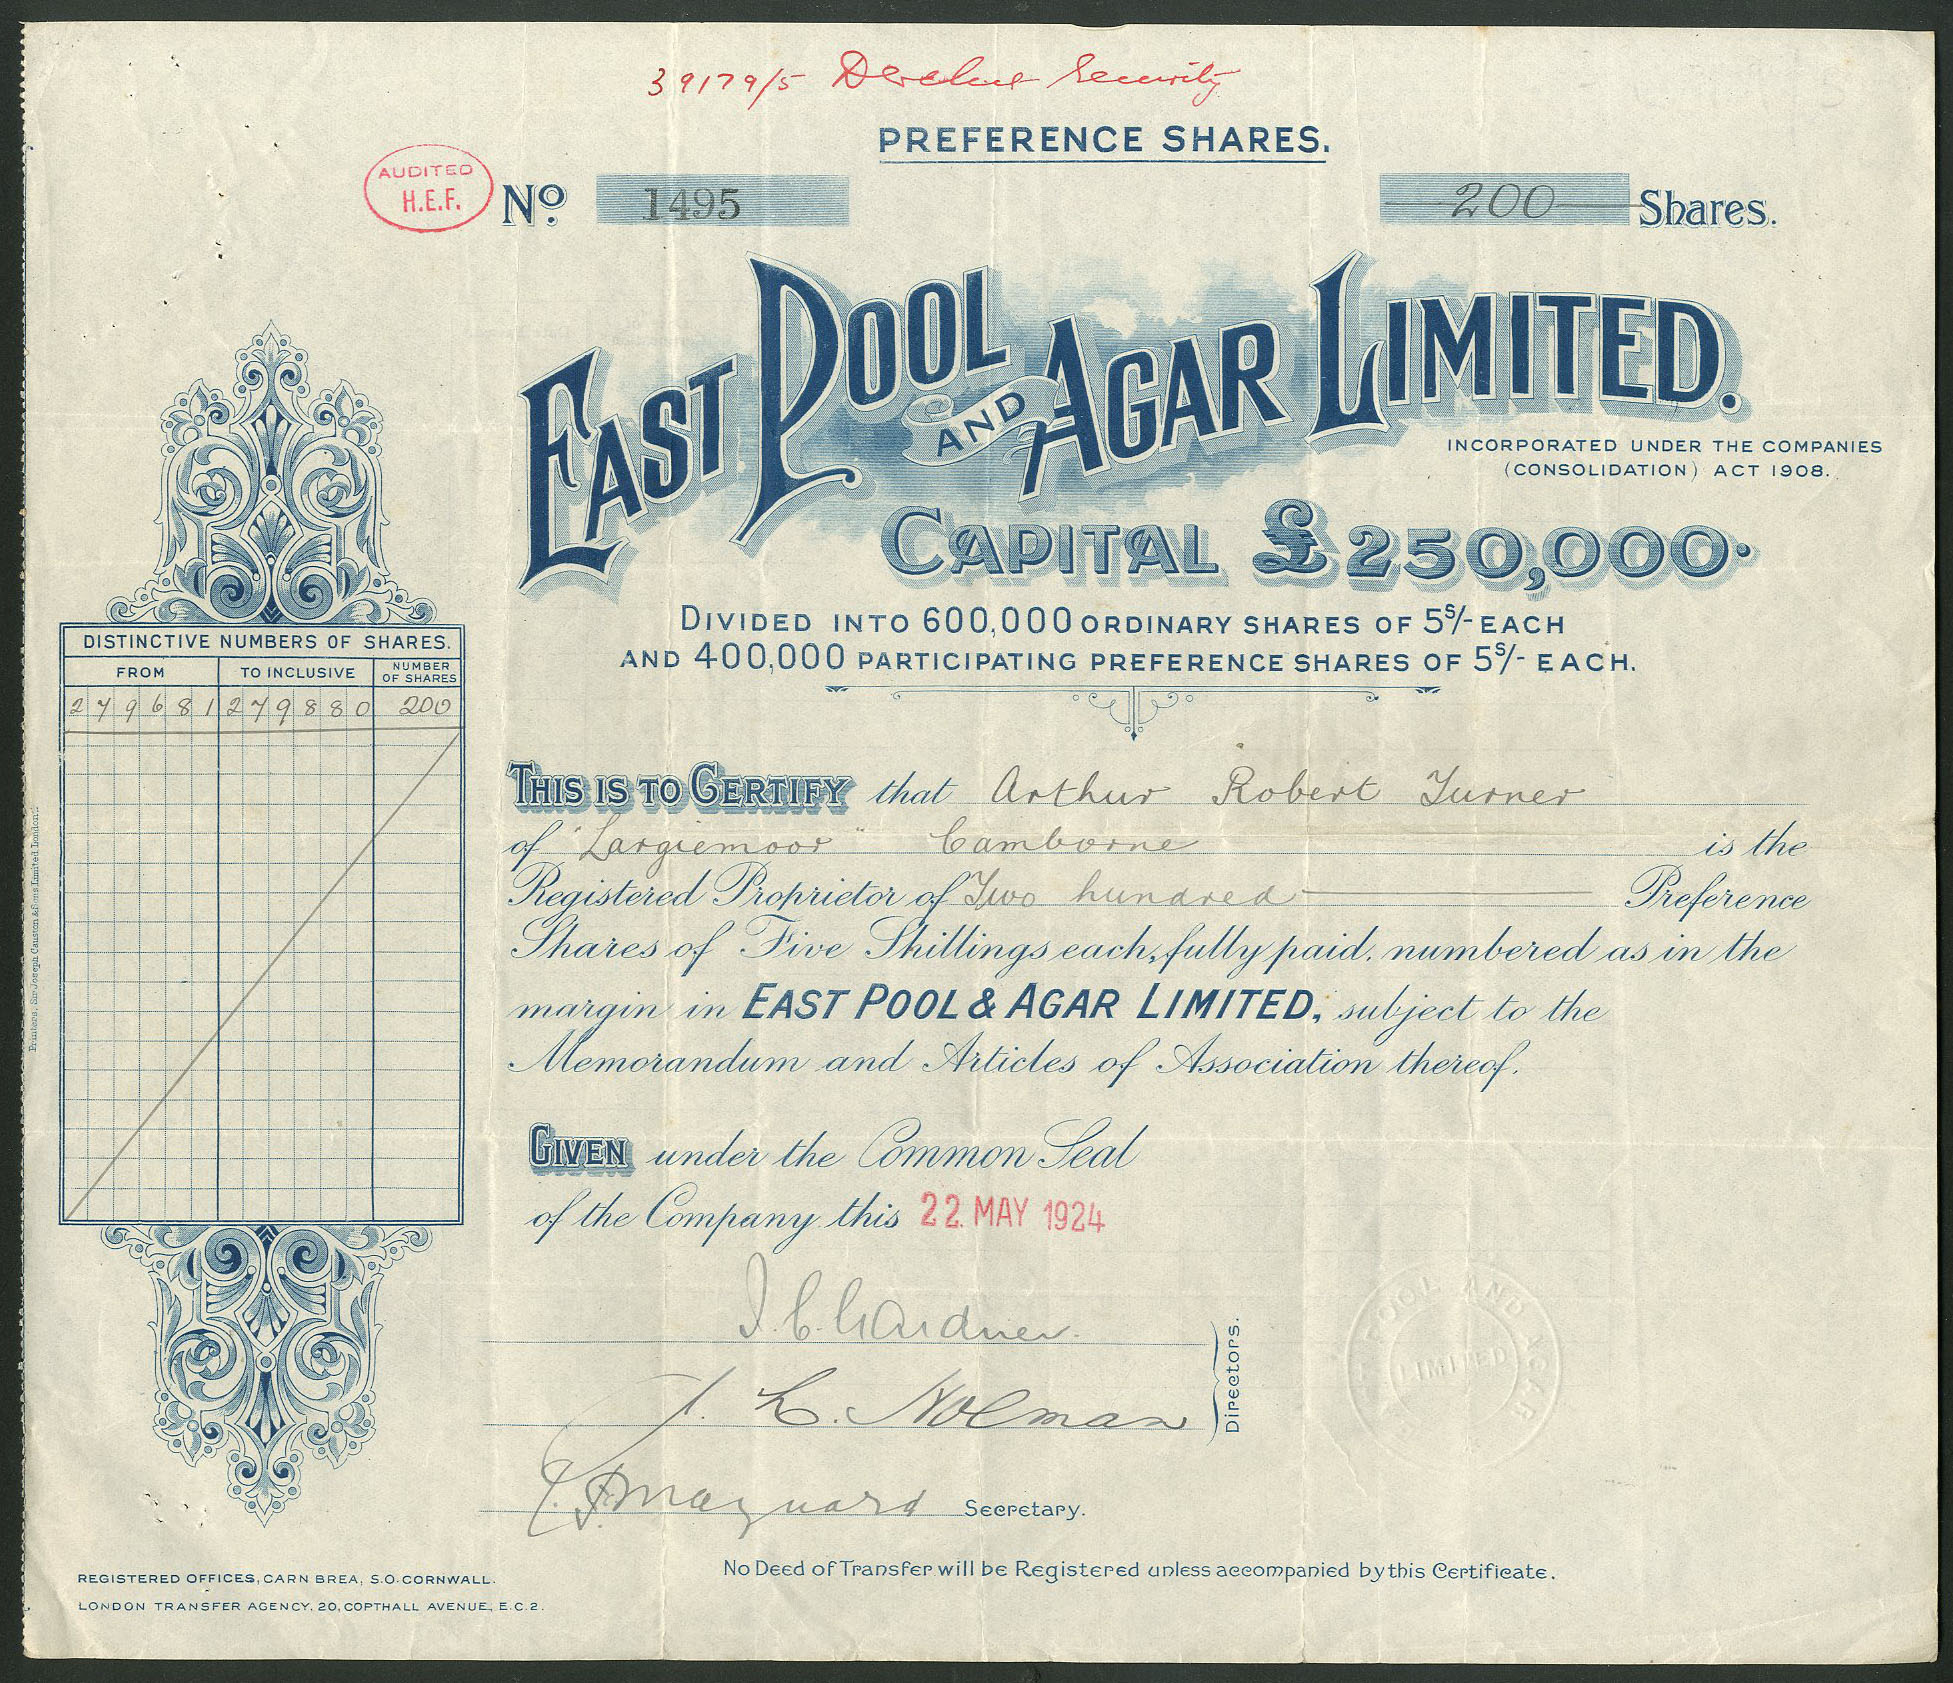 39179/5 Derelict Security
PREFERENCE SHARES.
AUDITED
H.E.F.
No. 1495
200 Shares.
EAST POOL AND AGAR LIMITED.
INCORPORATED UNDER THE COMPANIES
(CONSOLIDATION) ACT 1908.
CAPITAL £250,000.
DIVIDED INTO 600,000 ORDINARY SHARES OF 5S/- EACH
AND 400,000 PARTICIPATING PREFERENCE SHARES OF 5S/- EACH.
DISTINCTIVE NUMBERS OF SHARES.
FROM TO INCLUSIVE NUMBER OF SHARES
279681 279880 200
THIS IS TO CERTIFY that Arthur Robert Turner
of "Largiemoor" Camborne is the
Registered Proprietor of Two hundred Preference
Shares of Five Shillings each, fully paid, numbered as in the
margin in EAST POOL & AGAR LIMITED, subject to the
Memorandum and Articles of Association thereof.
GIVEN under the Common Seal
of the Company this 22 MAY 1924
J. C. Gardner.
Directors.
J. L. Holman
POOL AND AGAR
LIMITED
Maynard Secretary.
No Deed of Transfer will be Registered unless accompanied by this Certificate.
REGISTERED OFFICES, CARN BREA, S.O. CORNWALL.
LONDON TRANSFER AGENCY, 20, COPTHALL AVENUE, E.C.2.
Printers, Sir Joseph Causton & Sons Limited, London.